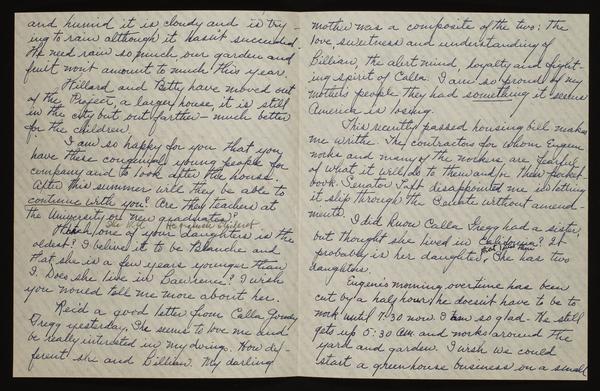 and humid it is cloudy and is try-
ing to rain although it hasn't succeeded.
We need rain so much, our garden and
fruit won't amount to much this year.
Hillard and Betty have moved out
of the Project, a larger house, it is still
in the city but out farther - much better
for the children.
I am so happy for you that you
have these congenial young people for
company and to look after the house.
After this summer will they be able to
continue with you? Are they teachers at
the University or new graduates?
Which one of your daughters is the
oldest? I believe it to be Blanche and
that she is a few years younger than
I. Does she live in Lawrence? I wish
you would tell me more about her.
Rec'd a good letter from Calla Gowdy
Gregg yesterday. She seems to love me and
be really interested in my doings. How dif-
ferent she and Lillian. My darling
mother was a composite of the two: The
love, sweetness and understanding of
Lillian, the alert mind, loyalty and fight-
ing spirit of Calla. I am so proud of my
mother's people. They had something it seems
America is losing.
This recently passed housing bill makes
me writhe. The contractors for whom Eugene
works and many of the workers are fearful
of what it will do to them and/or their pocket
book. Senator Taft disappointed me in letting
it slip through the Senate without amend-
ments.
I did know Calla Gregg had a sister,
but thought she lived in California? It
probably is her daughter, She has two
daughters.
Eugene's morning overtime has been
cut by a half hour, he doesn't have to be to
work until 7:30 now. I am so glad. He still
gets up 5:30 AM. and works around the
yard and garden. I wish we could
start a greenhouse business on a small